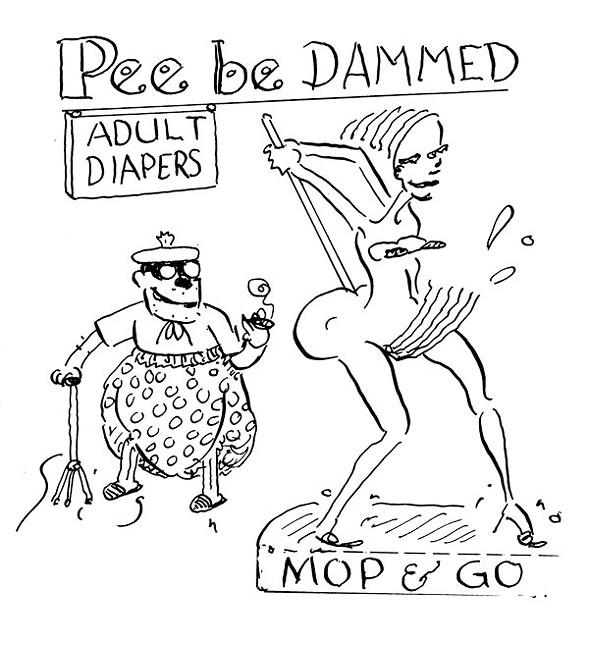 Pee be DAMMED
ADULT
DIAPERS
MOP & GO